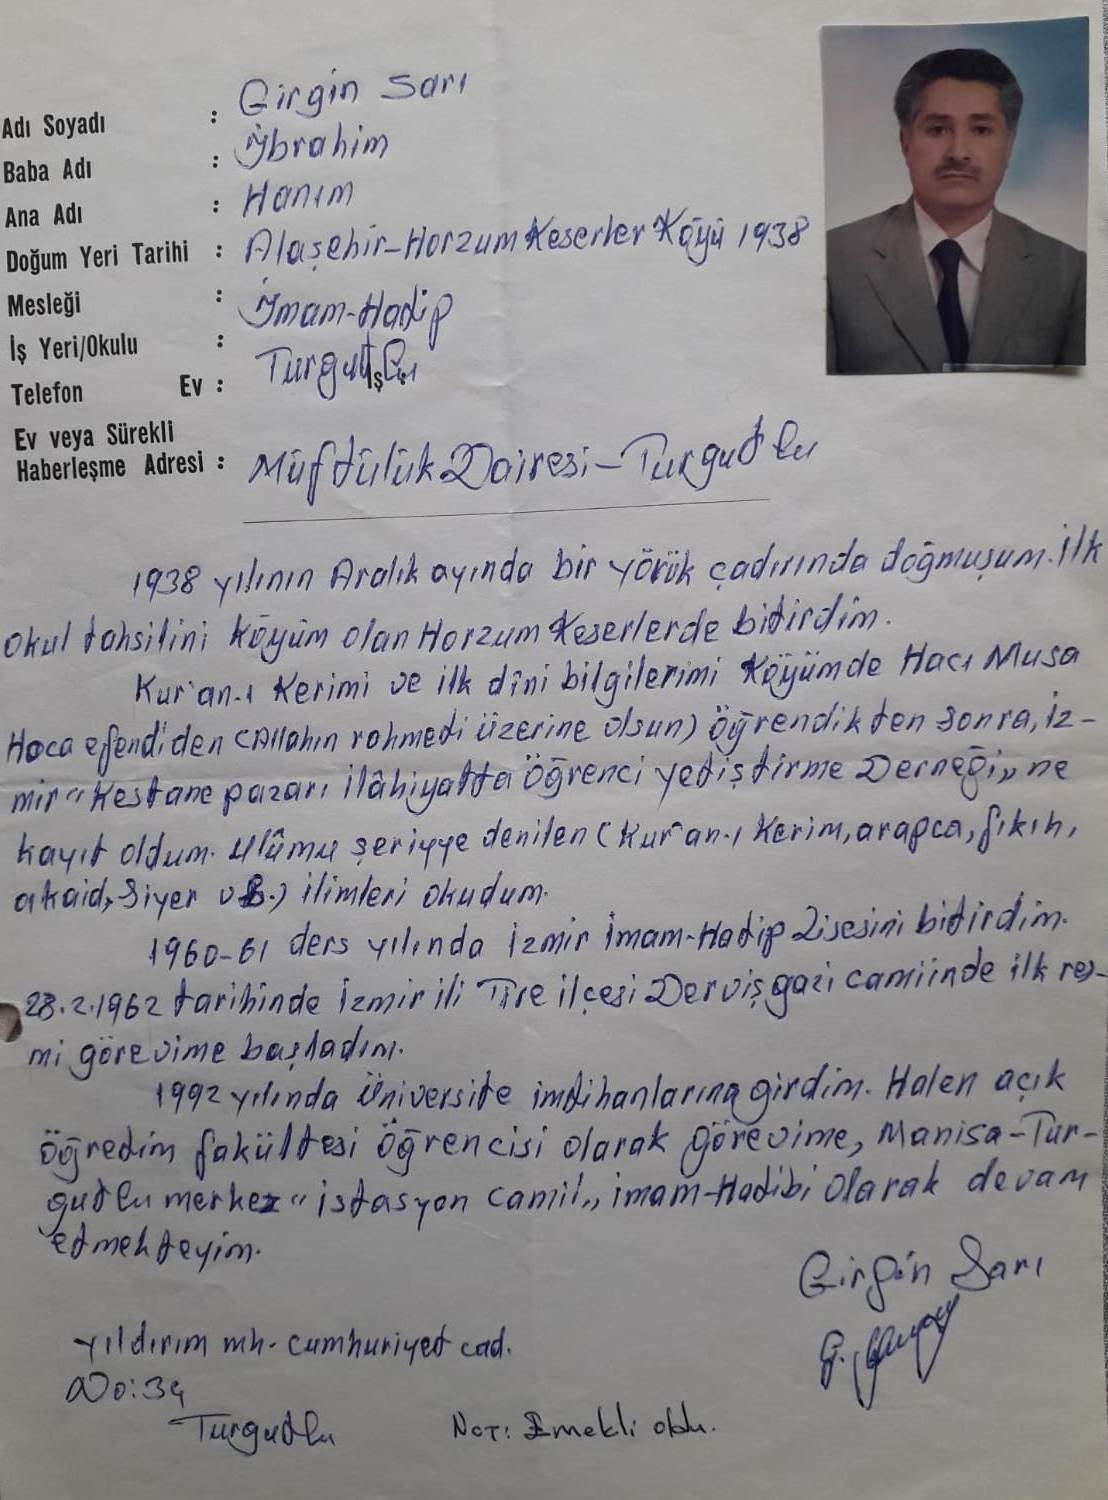 Adı Soyadı : Girgin Sarı
Baba Adı : İbrahim
Ana Adı : Hanım
Doğum Yeri Tarihi : Alaşehir-Horzum Keserler Köyü 1938
Mesleği : İmam-Hatip
İş Yeri/Okulu : Turgutlu
Telefon Ev : İş :
Ev veya Sürekli
Haberleşme Adresi : Müftülük Dairesi-Turgutlu
1938 yılının Aralık ayında bir yörük çadırında doğmuşum. İlk
okul tahsilini köyüm olan Horzum Keserlerde bitirdim.
Kur'an-ı Kerimi ve ilk dîni bilgilerimi köyümde Hacı Musa
Hoca efendiden (Allahın rahmeti üzerine olsun) öğrendikten sonra, İz-
mir "Kestane pazarı ilâhiyatta öğrenci yetiştirme Derneği" ne
kayıt oldum. Ulûmu şeriyye denilen (Kur'an-ı Kerim, arapca, fıkıh,
akaid, siyer vb.) ilimleri okudum.
1960-61 ders yılında İzmir İmam-Hatip Lisesini bitirdim.
28.2.1962 tarihinde İzmir ili Tire ilçesi Dervişgazi camiinde ilk res-
mi görevime başladım.
1992 yılında Üniversite imtihanlarına girdim. Halen açık
öğretim fakültesi öğrencisi olarak görevime, Manisa-Tur-
gutlu merkez "istasyon camii" imam-Hatibi olarak devam
etmekteyim.
Girgin Sarı
Yıldırım mh. Cumhuriyet cad.
No: 34
Turgutlu
Not: Emekli oldu.